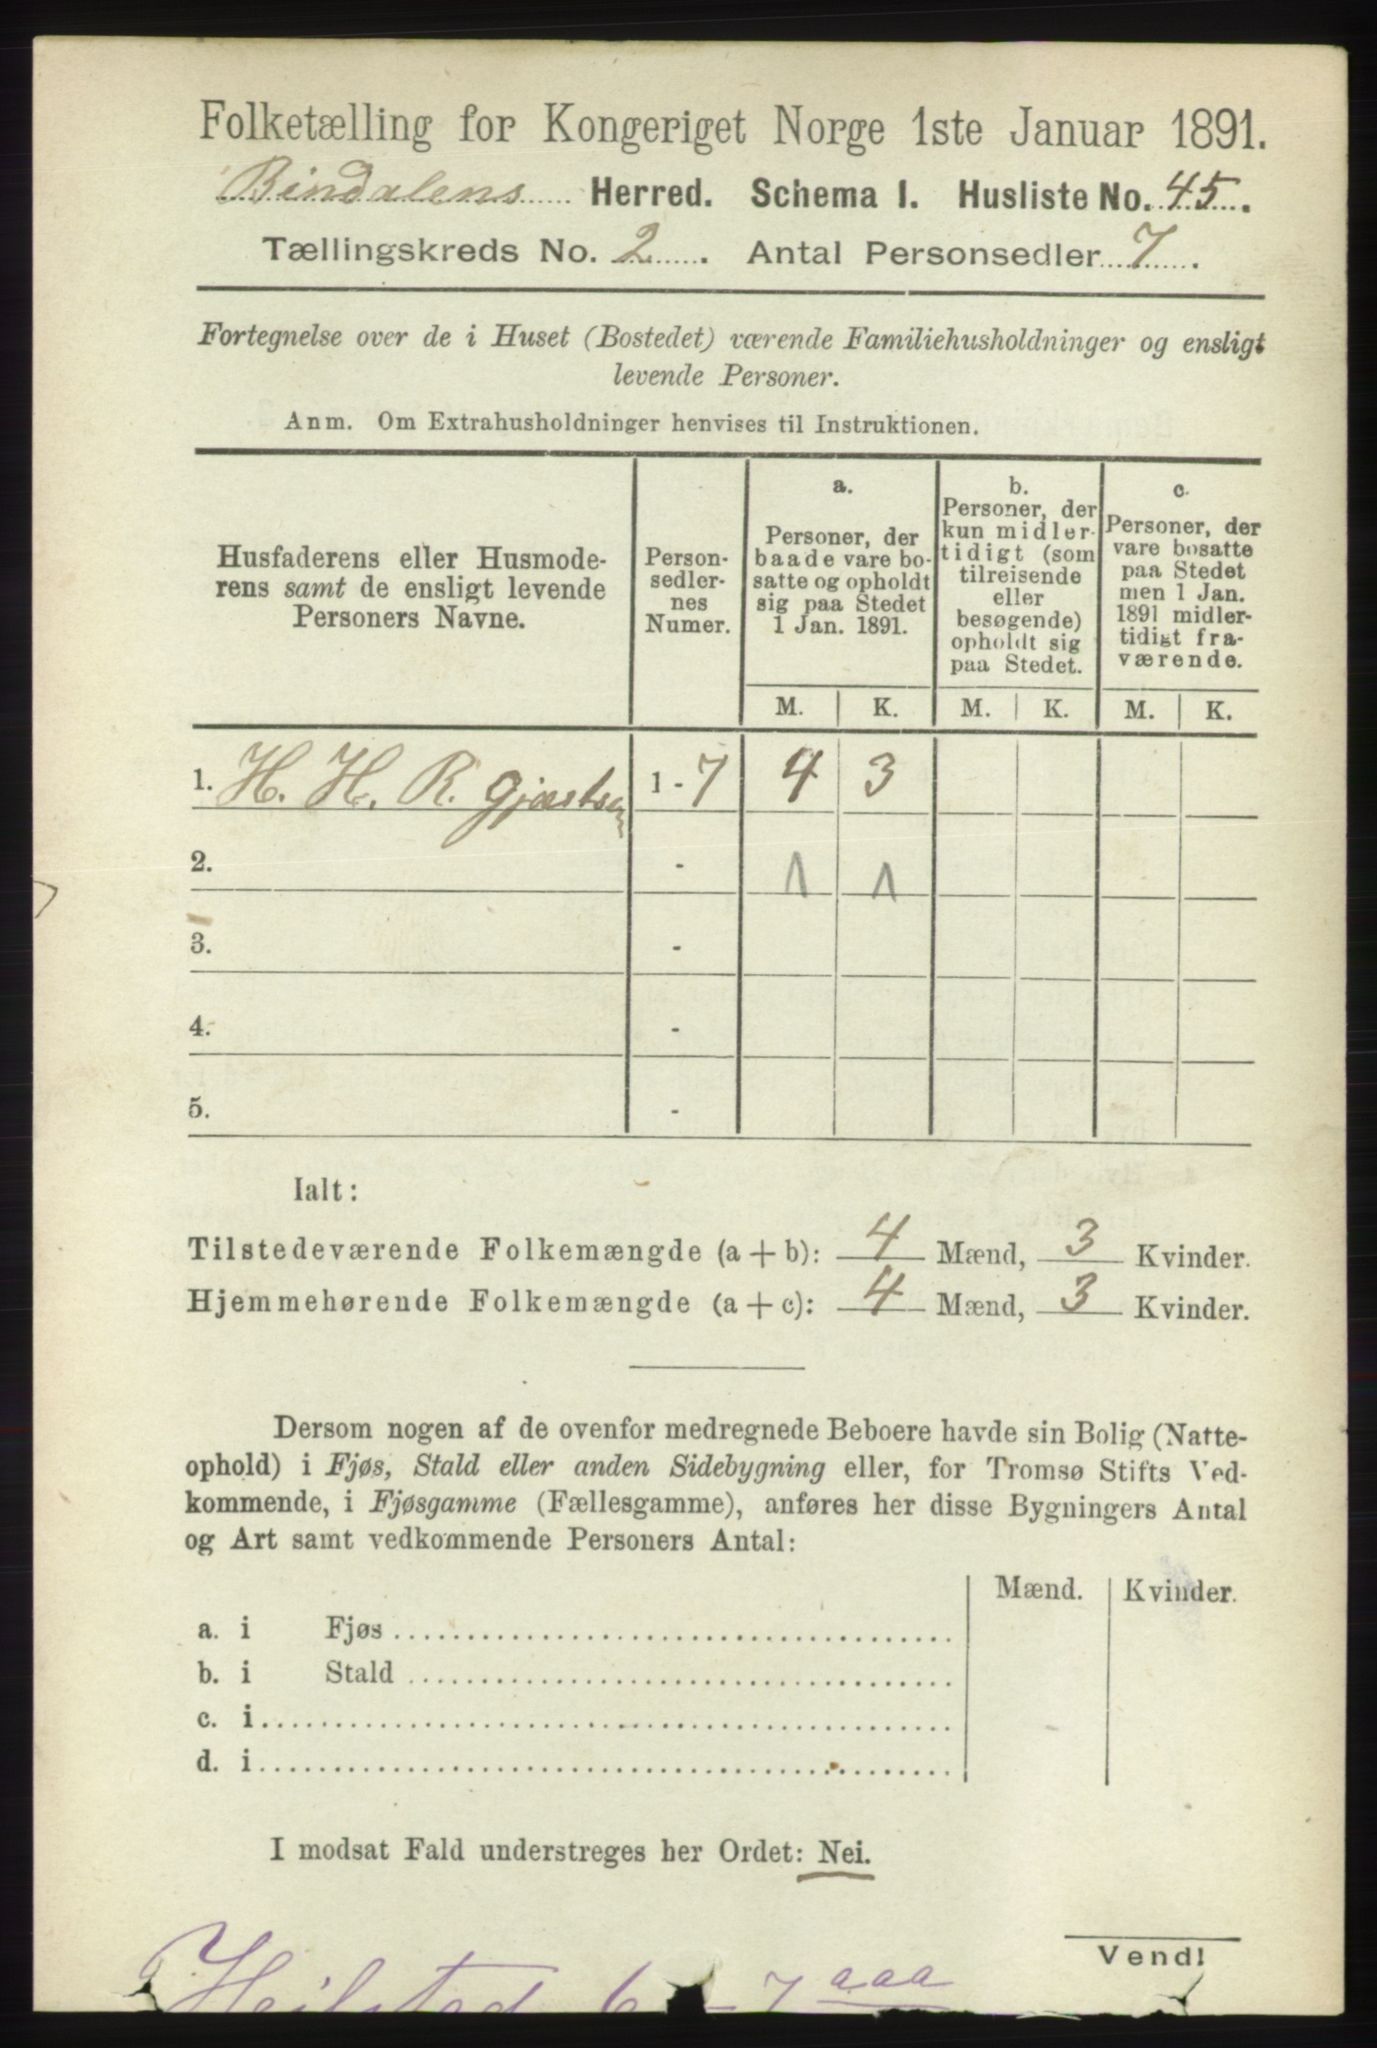 Folketælling for Kongeriget Norge 1ste Januar 1891.
Bindalens Herred. Schema I. Husliste No. 45.
Tællingskreds No. 2. Antal Personsedler 7.
Fortegnelse over de i Huset (Bostedet) værende Familiehusholdninger og ensligt
levende Personer.
Anm. Om Extrahusholdninger henvises til Instruktionen.
Husfaderens eller Husmode-
rens samt de ensligt levende
Personers Navne.
Person-
sedler-
nes
Numer.
a.
Personer, der
baade vare bo-
satte og opholdt
sig paa Stedet
1 Jan. 1891.
b.
Personer, der
kun midler-
tidigt (som
tilreisende
eller
besøgende)
opholdt sig
paa Stedet.
c.
Personer, der
vare bosatte
paa Stedet
men 1 Jan.
1891 midler-
tidigt fra-
værende.
M. K. M. K. M. K.
1. H. H. R. 1 - 7 4 3
2. - 1 1
3. -
4. -
5. -
Ialt:
Tilstedeværende Folkemængde (a + b): 4 Mænd, 3 Kvinder.
Hjemmehørende Folkemængde (a + c): 4 Mænd, 3 Kvinder.
Dersom nogen af de ovenfor medregnede Beboere havde sin Bolig (Natte-
ophold) i Fjøs, Stald eller anden Sidebygning eller, for Tromsø Stifts Ved-
kommende, i Fjøsgamme (Fællesgamme), anføres her disse Bygningers Antal
og Art samt vedkommende Personers Antal:
Mænd. Kvinder.
a. i Fjøs
b. i Stald
c. i
d. i
I modsat Fald understreges her Ordet: Nei.
Vend!
Heilstad 6 - 7 aaa